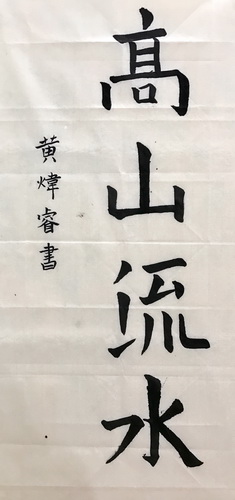 高山流水
黄煒睿書